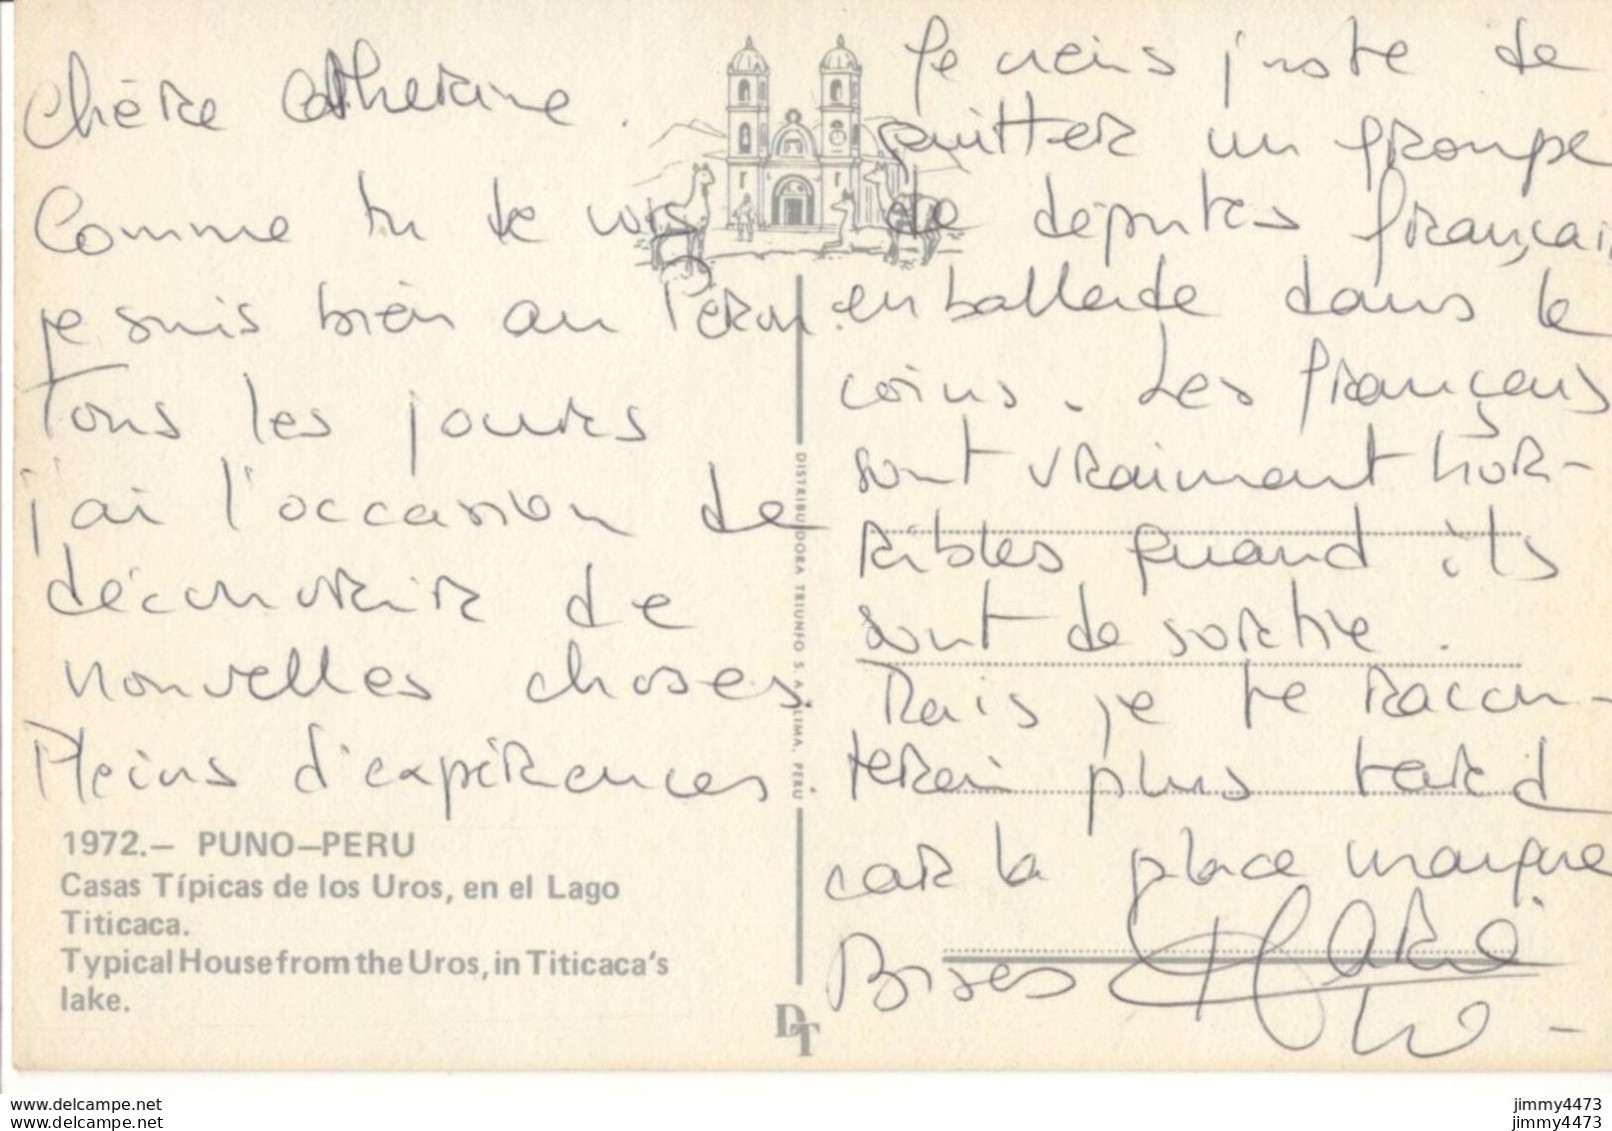 Chère Catherine.
Comme tu le vois
je suis bien au Pérou.
Tous les jours
j'ai l'occasion de
découvrir de
nouvelles choses
Pleins d'expériences.
1972.— PUNO—PERU
Casas Típicas de los Uros, en el Lago
Titicaca.
Typical House from the Uros, in Titicaca's
lake.
DISTRIBUIDORA TRIUNFO S.A. LIMA, PERU
DT
Je viens juste de
quitter un groupe
de députés françai
en ballade dans le
coins. Les français
sont vraiment hor-
ribles quand ils
sont de sortie.
Mais je te racon-
terai plus tard
car la place manque
Bises
delcampe.net
delcampe.net
jimmy4473
jimmy4473